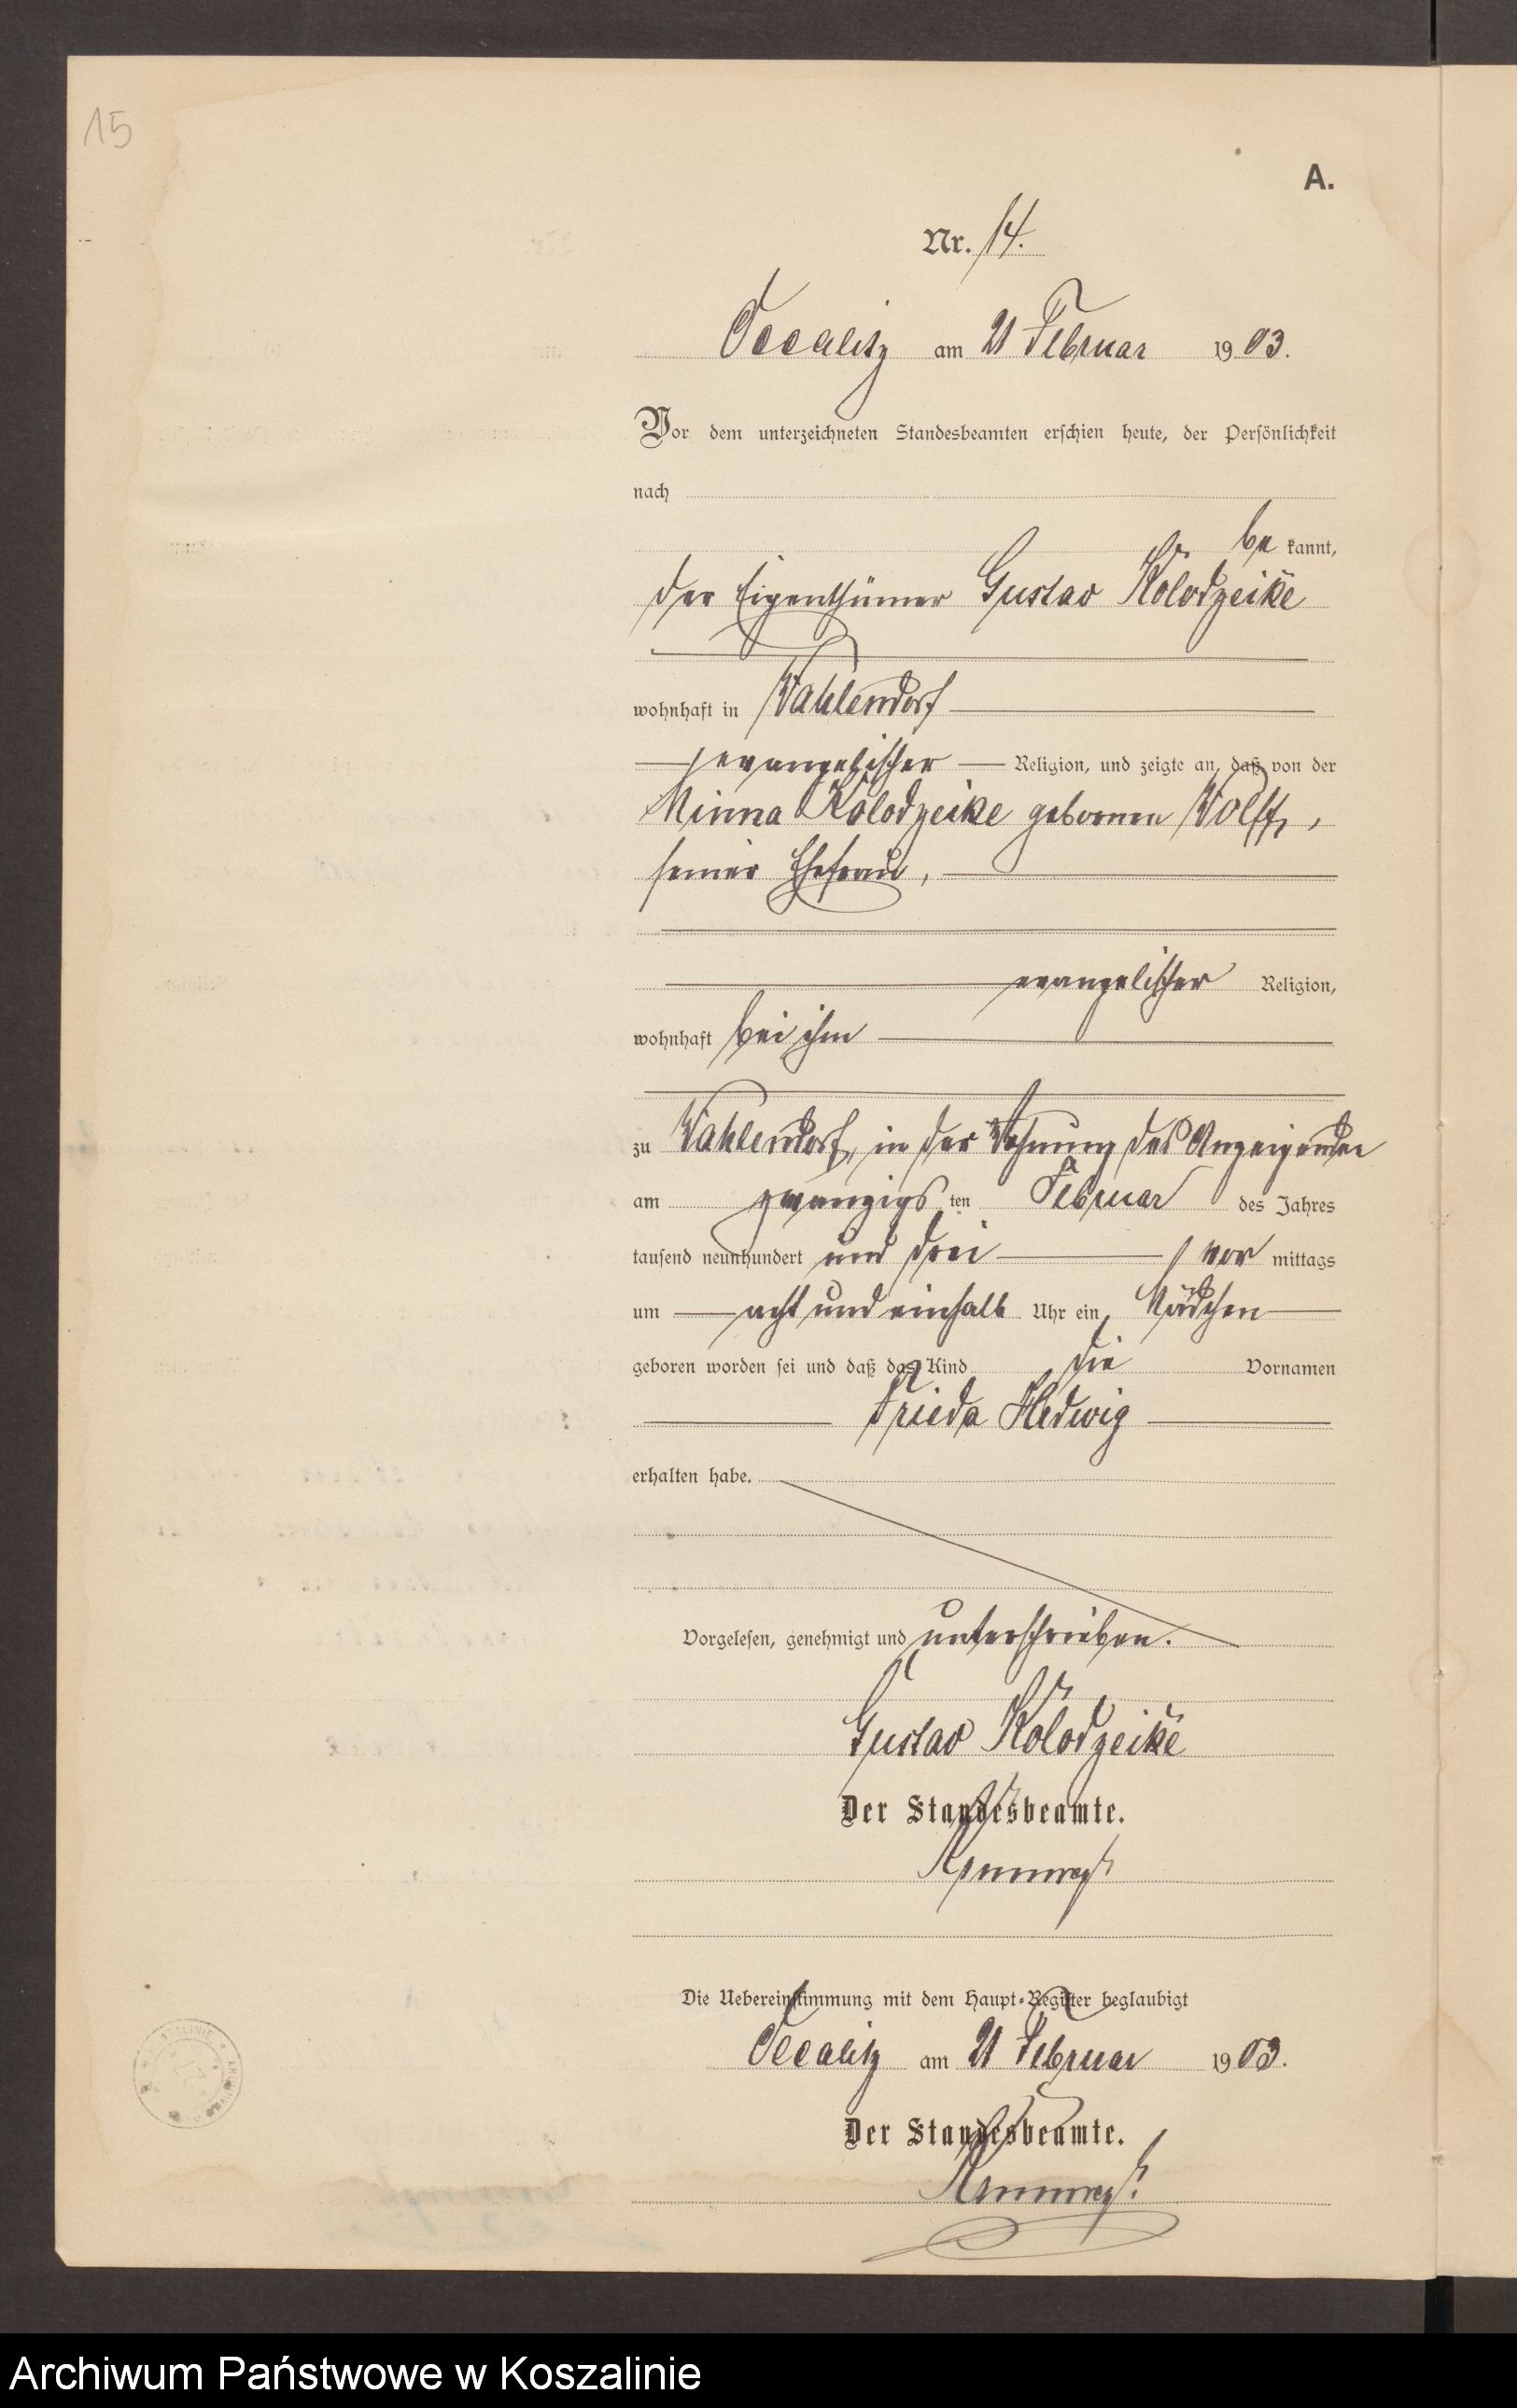 15
A.
Nr. 14.
Occalitz am 21 Februar 1903.
Vor dem unterzeichneten Standesbeamten erschien heute, der Persönlichkeit
nach
be kannt,
der Eigenthümer Gustav Kolodzeike
wohnhaft in Wahlendorf
evangelischer Religion, und zeigte an, daß von der
Minna Kolodzeike geborenen Wolff,
seiner Ehefrau,
evangelischer Religion,
wohnhaft bei ihm
zu Wahlendorf, in der Wohnung des Anzeigenden
am zwanzigs ten Februar des Jahres
tausend neunhundert und drei vor mittags
um acht und einhalb Uhr ein Mädchen
geboren worden sei und daß das Kind die Vornamen
Frieda Hedwig
erhalten habe.
Vorgelesen, genehmigt und unterschrieben.
Gustav Kolodzeike
Der Standesbeamte.
Die Uebereinstimmung mit dem Haupt-Register beglaubigt
Occalitz am 21 Februar 1903.
Der Standesbeamte.
Archiwum Państwowe w Koszalinie